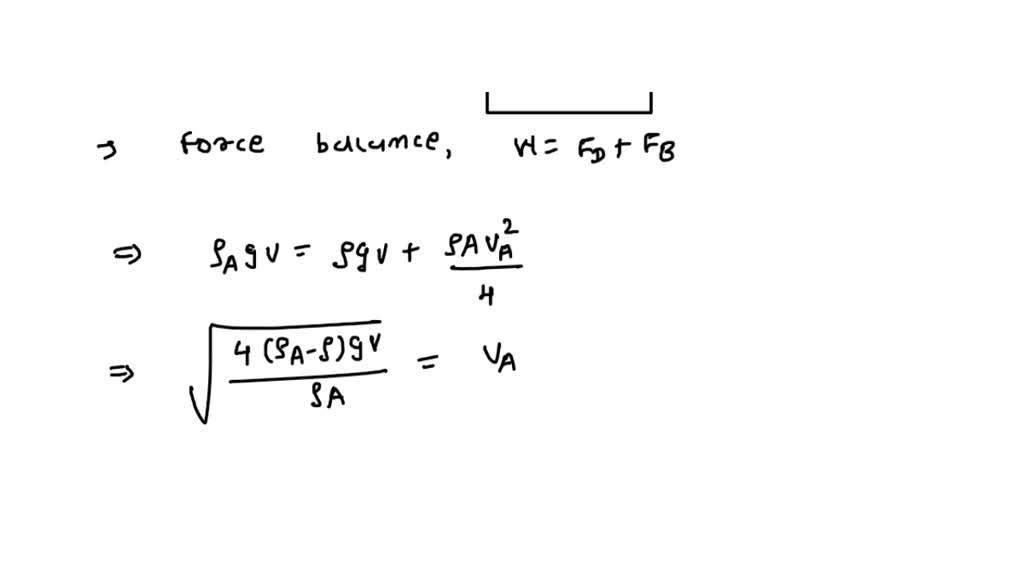 → Force balance, W = F_D + F_B
⇒ ρ_A g V = ρ g V + ρ A V_A^2 / 4
⇒ √(4 (ρ_A - ρ) g V / ρ A) = V_A